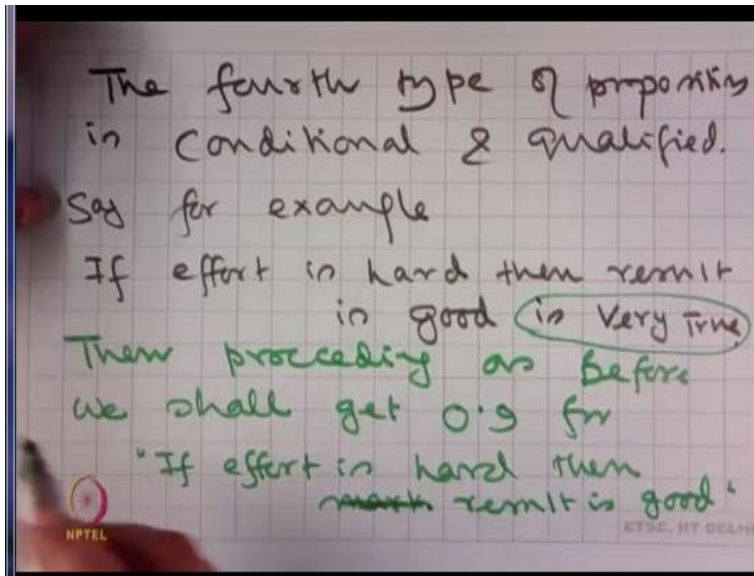 The fourth type of proposition
is conditional & qualified.
Say for example
If effort is hard then result
is good is very True
Then proceeding as Before
we shall get 0.9 for
"If effort is hard then
result is good"
NPTEL
ETSC, IIT DELHI